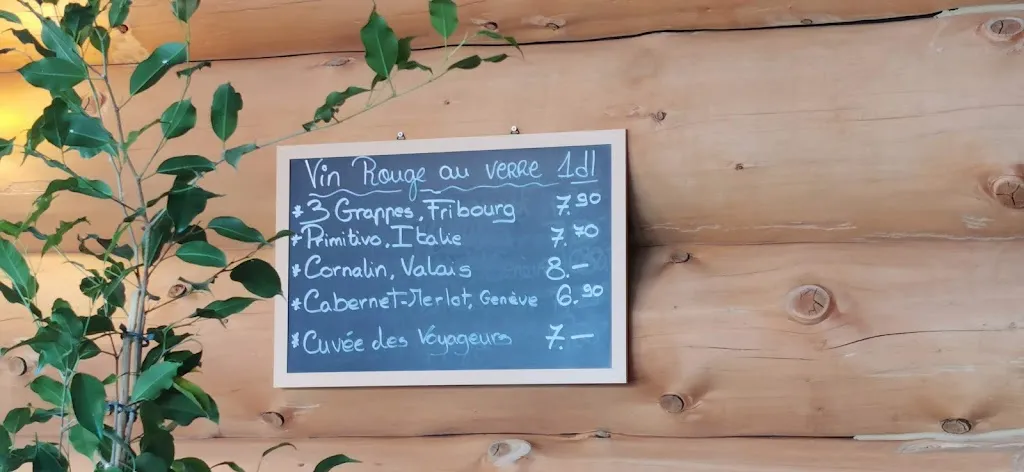 Vin Rouge au verre 1dl
* 3 Grappes, Fribourg 7.90
* Primitivo, Italie 7.70
* Cornalin, Valais 8.–
* Cabernet-Merlot, Genève 6.90
* Cuvée des Voyageurs 7.–